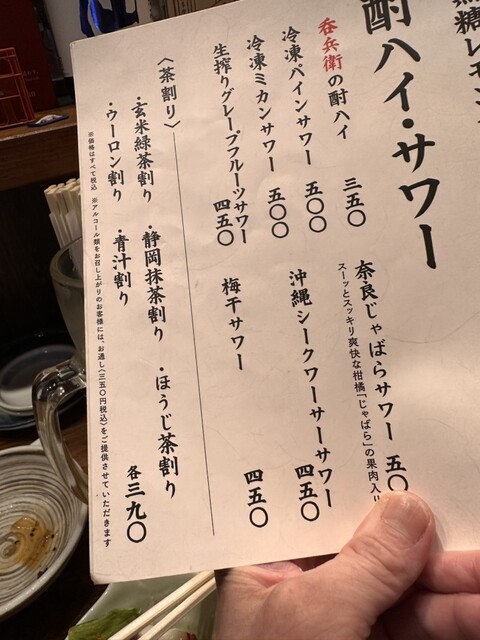 無糖レモン
酎ハイ・サワー
呑兵衛の酎ハイ 三五〇
奈良じゃばらサワー 五〇
スーッとスッキリ爽快な柑橘「じゃばら」の果肉入り
冷凍パインサワー 五〇〇
沖縄シークワーサーサワー 四五〇
冷凍ミカンサワー 五〇〇
生搾りグレープフルーツサワー 四五〇
梅干サワー 四五〇
〈茶割り〉
・玄米緑茶割り ・静岡抹茶割り ・ほうじ茶割り
・ウーロン割り ・青汁割り 各三九〇
※価格はすべて税込 ※アルコール類をお召し上がりのお客様には、お通し(三五〇円税込)をご提供させていただきます